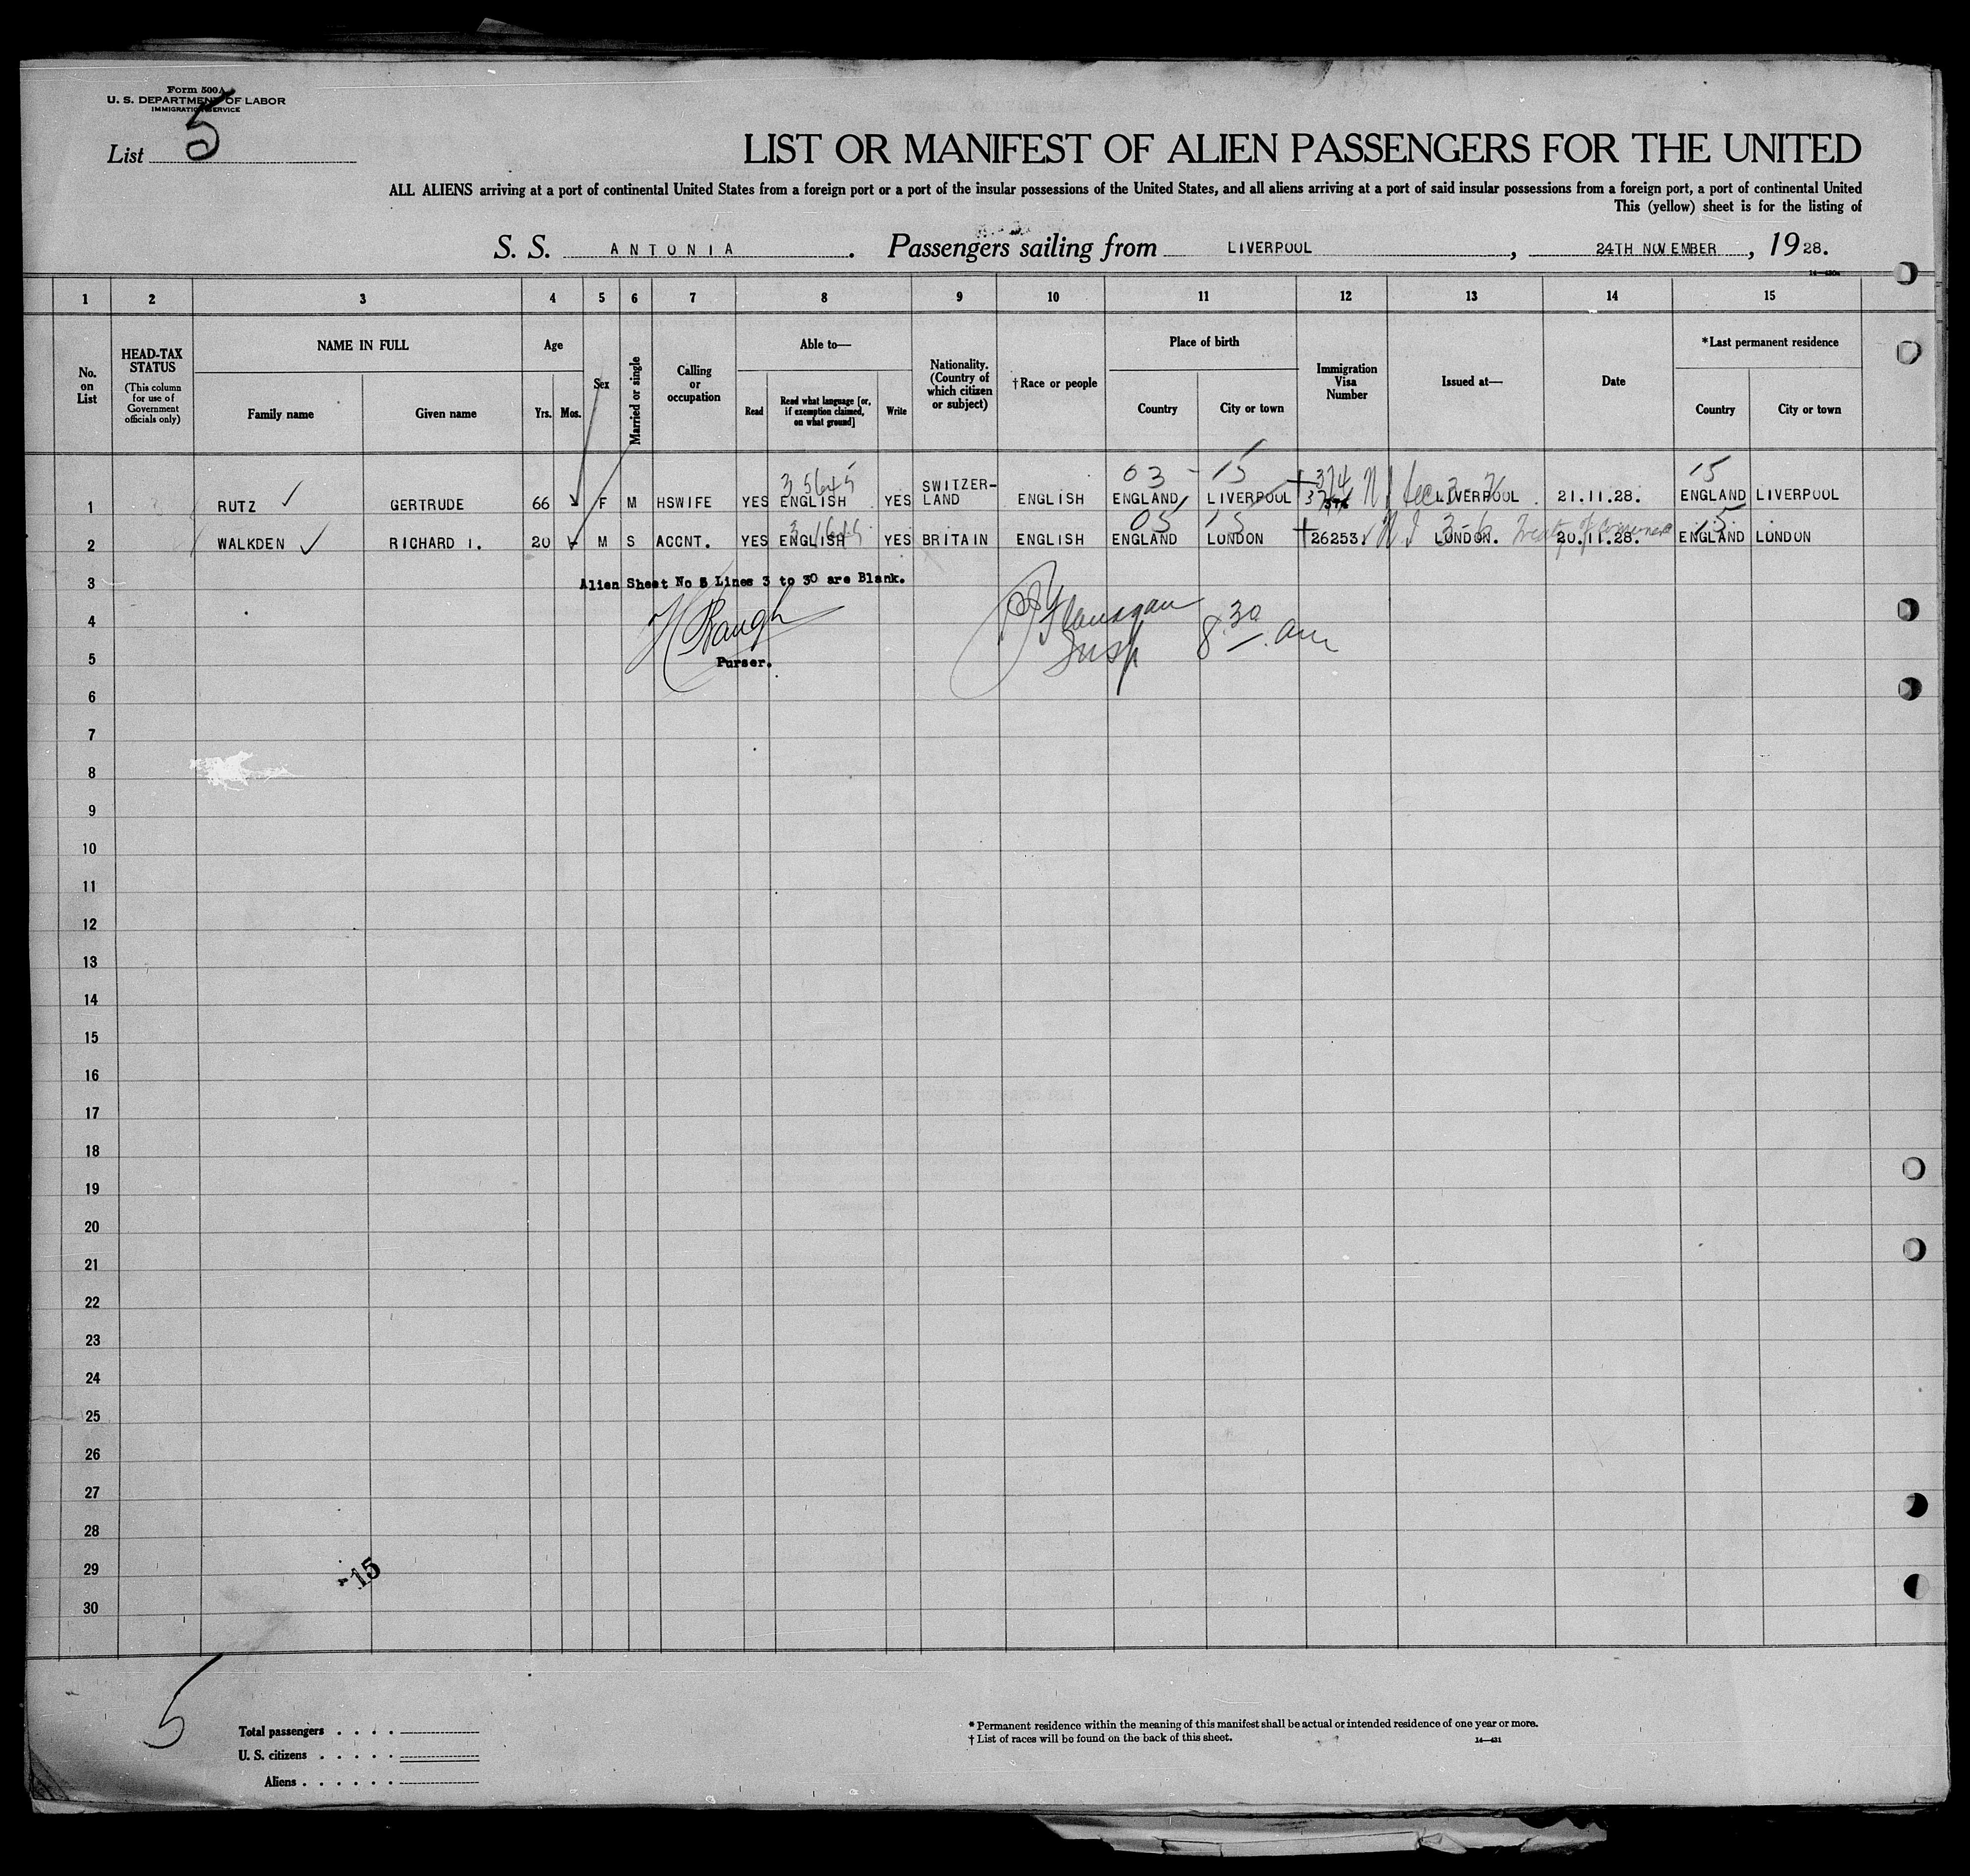 Form 500A
U. S. DEPARTMENT OF LABOR
IMMIGRATION SERVICE
List 5
LIST OR MANIFEST OF ALIEN PASSENGERS FOR THE UNITED
ALL ALIENS arriving at a port of continental United States from a foreign port or a port of the insular possessions of the United States, and all aliens arriving at a port of said insular possessions from a foreign port, a port of continental United
This (yellow) sheet is for the listing of
S. S. ANTONIA. Passengers sailing from LIVERPOOL, 24TH NOVEMBER, 1928.
1 2 3 4 5 6 7 8 9 10 11 12 13 14 15
No. on List
HEAD-TAX STATUS
(This column for use of Government officials only)
NAME IN FULL
Family name
Given name
Age
Yrs. Mos.
Sex
Married or single
Calling or occupation
Able to—
Read
Read what language [or, if exemption claimed, on what ground]
Write
Nationality. (Country of which citizen or subject)
†Race or people
Place of birth
Country
City or town
Immigration Visa Number
Issued at—
Date
*Last permanent residence
Country
City or town
03 - 15 15
1 RUTZ GERTRUDE 66 F M HSWIFE YES ENGLISH YES SWITZER-LAND ENGLISH ENGLAND LIVERPOOL 374 LIVERPOOL 21.11.28. ENGLAND LIVERPOOL
05 15 15
2 WALKDEN RICHARD I. 20 M S ACCNT. YES ENGLISH YES BRITAIN ENGLISH ENGLAND LONDON 26253 3-6 LONDON. 20.11.28. ENGLAND LONDON
3 Alien Sheet No 5 Lines 3 to 30 are Blank.
4 Flanagan 8 30 am
5 Purser. Insp
6
7
8
9
10
11
12
13
14
15
16
17
18
19
20
21
22
23
24
25
26
27
28
29 15
30
5
Total passengers . . . .
U. S. citizens . . . . .
Aliens . . . . . .
* Permanent residence within the meaning of this manifest shall be actual or intended residence of one year or more.
† List of races will be found on the back of this sheet.
14—431